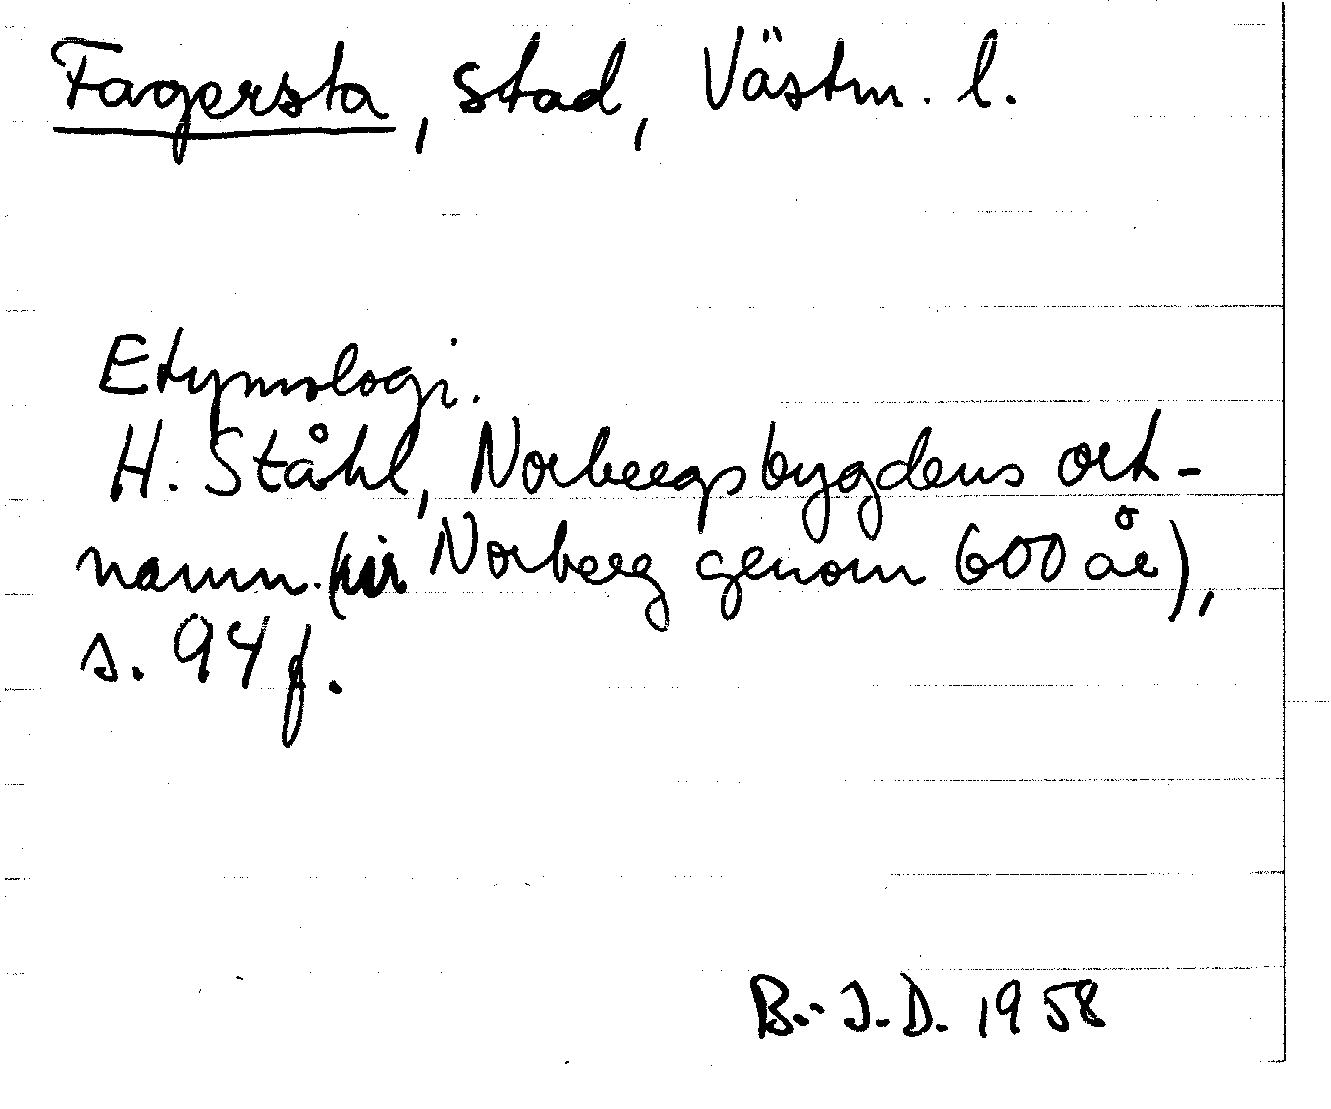 Fagersta, stad, Västm. l.
Etymologi.
H. Ståhl, Norbergsbygdens ort-
namn. (ur Norberg genom 600 år),
s. 94 f.
B.-J.D. 1958